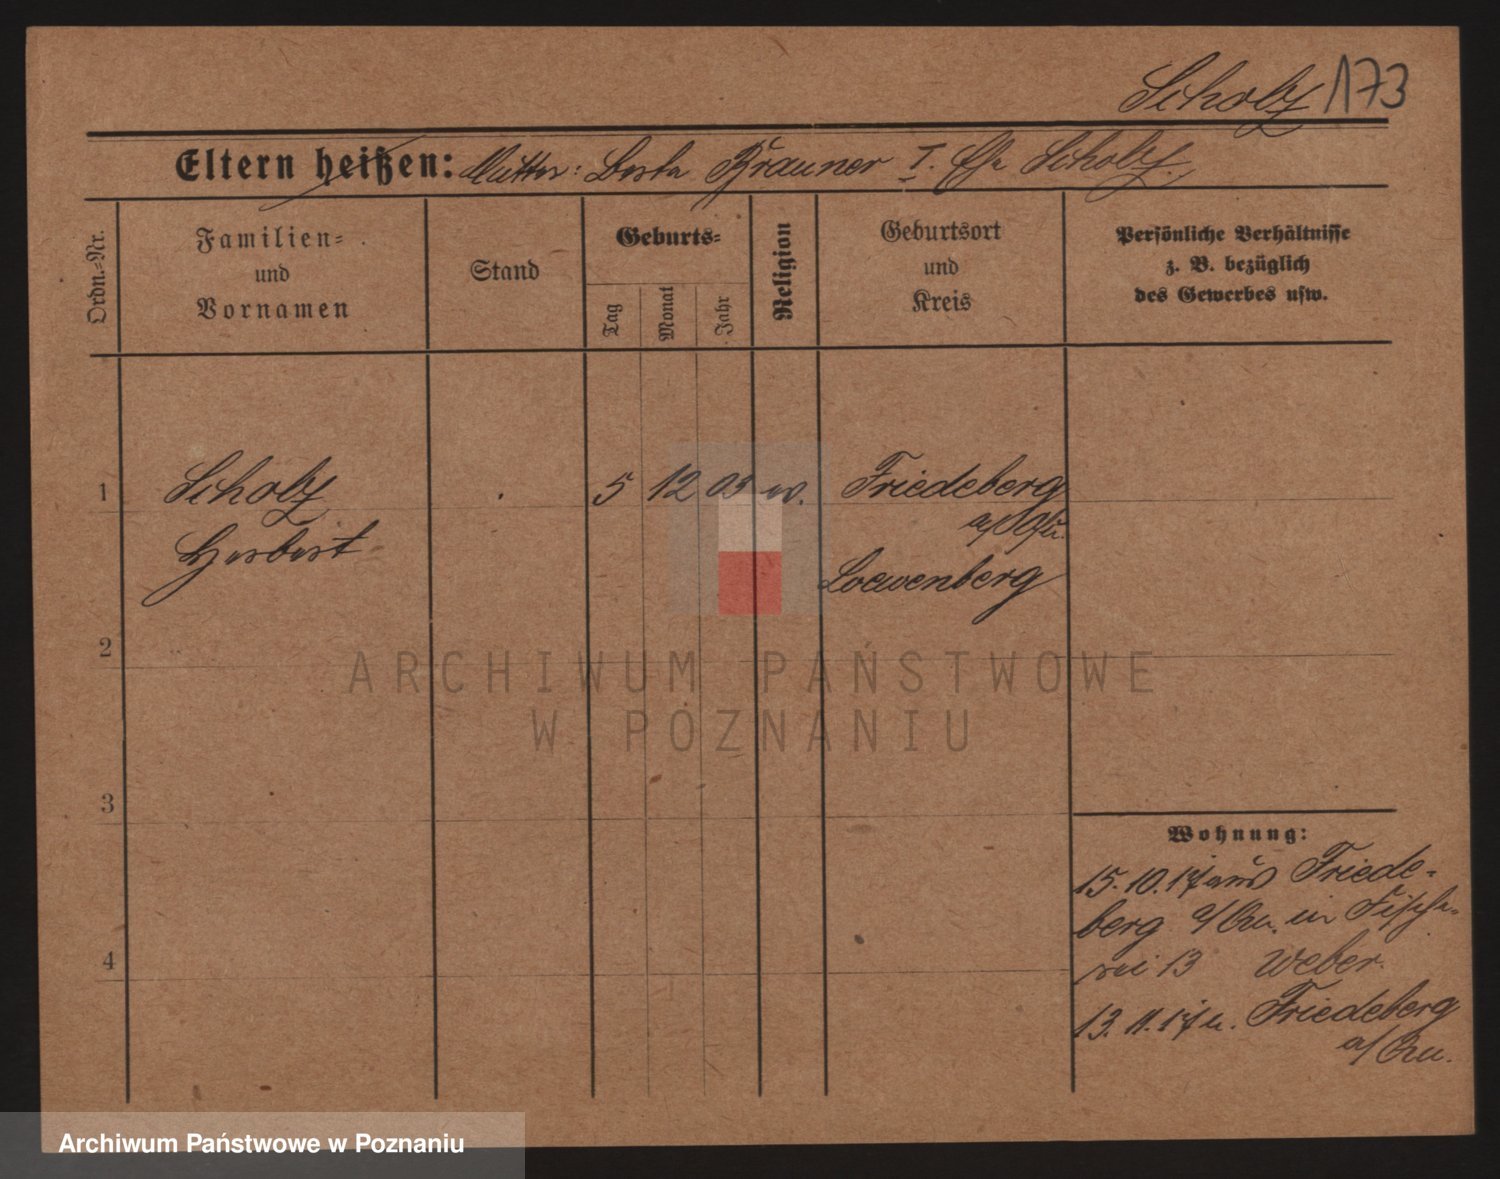 Scholz 173
Eltern heißen: Mutter: Berta Brauner I. Ehe Scholz.
Ordn.-Nr.
Familien-
und
Vornamen
Stand
Geburts-
Tag
Monat
Jahr
Religion
Geburtsort
und
Kreis
Persönliche Verhältnisse
z. B. bezüglich
des Gewerbes usw.
1 Scholz 5 12 03 ev. Friedeberg
a/Qu.
Herbert
Loewenberg
2
3
4
Wohnung:
15.10.17 aus Friede-
berg a/Qu. in Fische-
rei 13 Weber.
13.11.17 n. Friedeberg
a/Qu.
ARCHIWUM PAŃSTWOWE
W POZNANIU
Archiwum Państwowe w Poznaniu